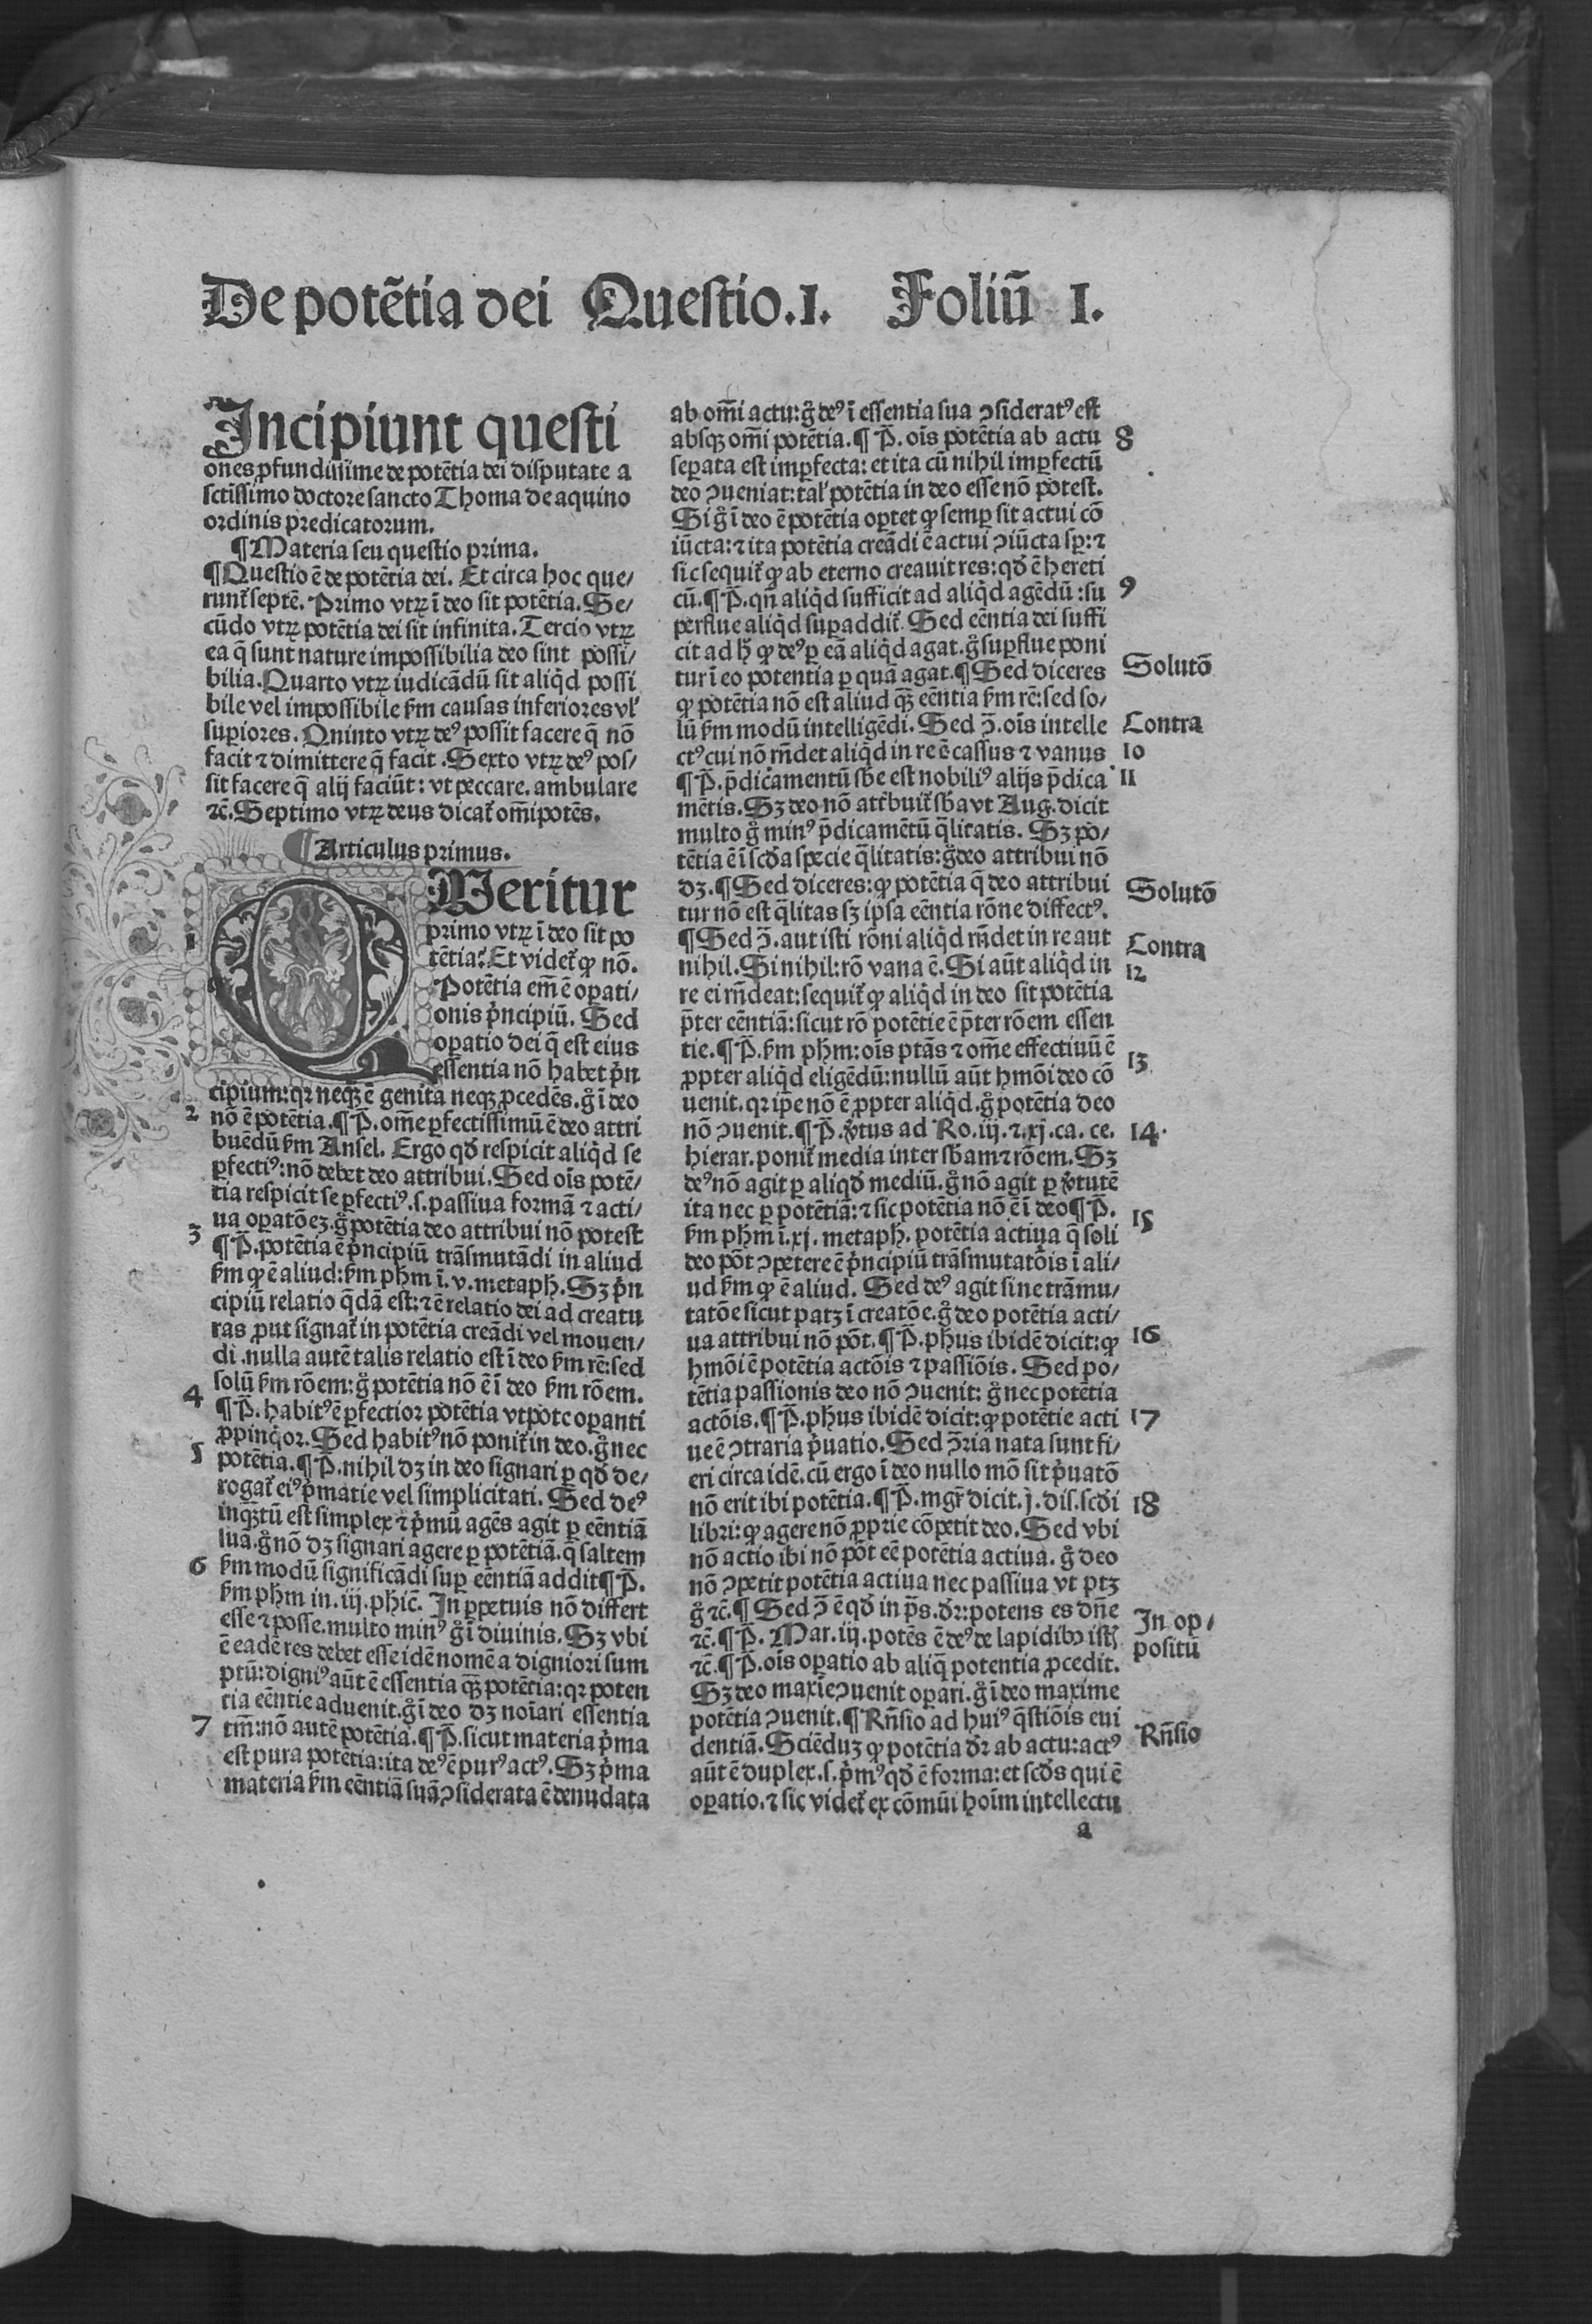 De potẽtia dei Questio.I. Foliũ I.
Incipiunt questi
ones ꝓfundissime de potẽtia dei disputate a
sctissimo doctore sancto Thoma de aquino
ordinis predicatorum.
¶Materia seu questio prima.
¶Questio ẽ de potẽtia dei. Et circa hoc que/
runt̃ septẽ. Primo vtrꝫ ĩ deo sit potẽtia. Se/
cũdo vtrꝫ potẽtia dei sit infinita. Tercio vtrꝫ
ea q̃ sunt nature impossibilia deo sint possi/
bilia. Quarto vtrꝫ iudicãdũ sit aliq̃d possi
bile vel impossibile ẜm causas inferiores vl̃
suꝑiores. Quinto vtrꝫ deꝰ possit facere q̃ nõ
facit ⁊ dimittere q̃ facit. Sexto vtrꝫ deꝰ pos/
sit facere q̃ alij faciũt: vt peccare. ambulare
⁊c̃. Septimo vtrꝫ deus dicat̃ om̃ipotẽs.
¶Articulus primus.
QVeritur
primo vtrꝫ ĩ deo sit po
tẽtia. Et videt̃ ꝙ nõ.
1
Potẽtia em̃ ẽ oꝑati/
onis p̃ncipiũ. Sed
oꝑatio dei q̃ est eius
essentia nõ habet p̃n
cipium: qꝛ neqꝫ ẽ genita neqꝫ ꝓcedẽs. g̊ ĩ deo
2 nõ ẽ potẽtia. ¶P̃. om̃e ꝑfectissimũ ẽ deo attri
buẽdũ ẜm Ansel. Ergo qd̃ respicit aliq̃d se
ꝑfectiꝰ: nõ debet deo attribui. Sed ois̃ potẽ/
tia respicit se ꝑfectiꝰ .s. passiua formã ⁊ acti/
ua oꝑatõeꝫ. g̊ potẽtia deo attribui nõ potest
3 ¶P̃. potẽtia ẽ p̃ncipiũ trãsmutãdi in aliud
ẜm ꝙ ẽ aliud: ẜm ph̃m ĩ .v. metaph̃. Sꝫ p̃n
cipiũ relatio q̃dã est: ⁊ ẽ relatio dei ad creatu
ras ꝓut signat̃ in potẽtia creãdi vel mouen/
di. nulla autẽ talis relatio est ĩ deo ẜm rẽ: sed
solũ ẜm rõem: g̊ potẽtia nõ ẽ ĩ deo ẜm rõem.
4 ¶P̃. habitꝰ ẽ ꝑfectior potẽtia vtpote oꝑanti
ꝓpinq̃or. Sed habitꝰ nõ ponit̃ in deo. g̊ nec
5 potẽtia. ¶P̃. nihil dꝫ in deo signari ꝑ qd̃ de/
rogat̃ eiꝰ p̃matie vel simplicitati. Sed deꝰ
inqꝫtũ est simplex ⁊ p̃mũ agẽs agit ꝑ eẽntiã
suã. g̊ nõ dꝫ signari agere ꝑ potẽtiã. q̃ saltem
6 ẜm modũ significãdi suꝑ eẽntiã addit ¶P̃.
ẜm ph̃m in .iij. phic̃. In ꝑpetuis nõ differt
esse ⁊ posse. multo minꝰ g̊ ĩ diuinis. Sꝫ vbi
ẽ eadẽ res debet esse idẽ nomẽ a digniori sum
ptũ: digniꝰ aũt ẽ essentia qꝫ potẽtia: qꝛ poten
tia eẽntie aduenit. g̊ ĩ deo dꝫ noĩari essentia
7 tm̃: nõ autẽ potẽtia. ¶P̃. sicut materia p̃ma
est pura potẽtia: ita deꝰ ẽ purꝰ actꝰ. Sꝫ p̃ma
materia ẜm eẽntiã suã ↄsiderata ẽ denudata
ab om̃i actu: g̊ deꝰ ĩ essentia sua ↄsideratꝰ est
absqꝫ om̃i potẽtia. ¶P̃. ois̃ potẽtia ab actu 8
seꝑata est imꝑfecta: et ita cũ nihil imꝑfectũ
deo ↄueniat: tal̃ potẽtia in deo esse nõ potest.
Si g̊ ĩ deo ẽ potẽtia oꝑtet ꝙ semꝑ sit actui cõ
iũcta: ⁊ ita potẽtia creãdi ẽ actui ↄiũcta sꝑ: ⁊
sic sequit̃ ꝙ ab eterno creauit res: qd̃ ẽ hereti
cũ. ¶P̃. qñ aliq̃d sufficit ad aliq̃d agẽdũ: su 9
perflue aliq̃d suꝑaddit̃. Sed eẽntia dei suffi
cit ad h̃ ꝙ deꝰ ꝑ eã aliq̃d agat. g̊ suꝑflue poni
tur ĩ eo potentia ꝑ quã agat. ¶Sed diceres Solutõ
ꝙ potẽtia nõ est aliud qꝫ eẽntia ẜm rẽ: sed so/
lũ ẜm modũ intelligẽdi. Sed ↄ̃. ois̃ intelle Contra
ctꝰ cui nõ rñdet aliq̃d in re ẽ cassus ⁊ vanus 10
¶P̃. p̃dicamentũ sb̃e est nobiliꝰ alijs p̃dica 11
mẽtis. Sꝫ deo nõ att̃buit̃ sb̃a vt Aug. dicit
multo g̊ minꝰ p̃dicamẽtũ q̃litatis. Sꝫ po/
tẽtia ẽ ĩ scd̃a specie q̃litatis: g̊ deo attribui nõ
dꝫ. ¶Sed diceres: ꝙ potẽtia q̃ deo attribui Solutõ
tur nõ est q̃litas sꝫ ipsa eẽntia rõne differẽtꝰ.
¶Sed ↄ̃. aut isti rõni aliq̃d rñdet in re aut Contra
nihil. Si nihil: rõ vana ẽ. Si aũt aliq̃d in 12
re ei rñdeat: sequit̃ ꝙ aliq̃d in deo sit potẽtia
p̃ter eẽntiã: sicut rõ potẽtie ẽ p̃ter rõem essen
tie. ¶P̃. ẜm ph̃m: ois̃ ptãs ⁊ om̃e effectiuũ ẽ 13
ꝓpter aliq̃d eligẽdũ: nullũ aũt hmõi deo cõ
uenit. qꝛ ip̃e nõ ẽ ꝓpter aliq̃d. g̊ potẽtia deo
nõ ↄuenit. ¶P̃. ṽtus ad Ro. iij. ⁊ .xj. ca. ce. 14.
hierar. ponit̃ media inter sb̃am ⁊ rõem. Sꝫ
deꝰ nõ agit ꝑ aliqd̃ mediũ. g̊ nõ agit ꝑ ṽtutẽ
ita nec ꝑ potẽtiã: ⁊ sic potẽtia nõ ẽ ĩ deo ¶P̃. 15
ẜm ph̃m ĩ .xj. metaph̃. potẽtia actiua q̃ soli
deo põt ↄpetere ẽ p̃ncipiũ trãsmutatõis ĩ ali/
ud ẜm ꝙ ẽ aliud. Sed deꝰ agit sine trãmu/
tatõe sicut patꝫ ĩ creatõe. g̊ deo potẽtia acti/
ua attribui nõ põt. ¶P̃. ph̃us ibidẽ dicit: ꝙ 16
hmõi ẽ potẽtia actõis ⁊ passiõis. Sed po/
tẽtia passionis deo nõ ↄuenit: g̊ nec potẽtia
actõis. ¶P̃. ph̃us ibidẽ dicit: ꝙ potẽtie acti 17
ue ẽ ↄtraria p̃uatio. Sed ↄ̃ria nata sunt fi/
eri circa idẽ. cũ ergo ĩ deo nullo mõ sit p̃uatõ
nõ erit ibi potẽtia. ¶P̃. mgr̃ dicit .j. dis. scd̃i 18
libri: ꝙ agere nõ ꝓprie cõpetit deo. Sed vbi
nõ actio ibi nõ põt eẽ potẽtia actiua. g̊ deo
nõ ↄpetit potẽtia actiua nec passiua vt ptꝫ
g̊ ⁊c̃. ¶Sed ↄ̃ ẽ qd̃ in p̃s. dr̃: potens es dñe In oꝑ/
⁊c̃. ¶P̃. Mar. iij. potẽs ẽ deꝰ de lapidibꝰ ist̃ positũ
⁊c̃. ¶P̃. ois̃ oꝑatio ab aliq̃ potentia ꝓcedit.
Sꝫ deo maxiẽ ↄuenit oꝑari. g̊ ĩ deo maxime
potẽtia ↄuenit. ¶Rñsio ad huiꝰ q̃stiõis eui Rñsio
dentiã. Sciẽduꝫ ꝙ potẽtia dr̃ ab actu: actꝰ
aũt ẽ duplex .s. p̃mꝰ qd̃ ẽ forma: et scd̃s qui ẽ
oꝑatio. ⁊ sic videt̃ ex cõmũi hoĩm intellectu
a